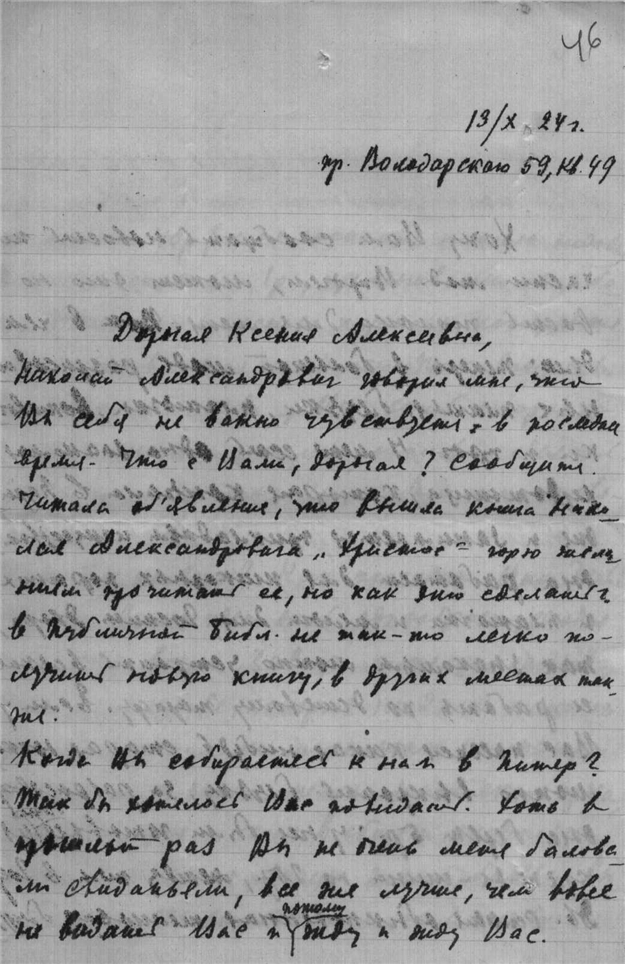 46
13/X 24 г.
пр. Володарского 59, кв. 49
Дорогая Ксения Алексеевна,
Николай Александрович говорил мне, что
Вы себя не важно чувствуете в последнее
время. Что с Вами, дорогая? Сообщите.
Читала об'явление, что вышла книга Нико-
лая Александровича „Христос" – горю жела-
нием прочитать ее, но как это сделать?
в Публичной Библ. не так-то легко по-
лучить новую книгу, в других местах так-
же.
Когда Вы собираетесь к нам в Питер?
Так бы хотелось Вас повидать. Хоть в
прошлый раз Вы не очень меня балова-
ли свиданьями, все же лучше, чем вовсе
не видать Вас и потому жду и жду Вас.